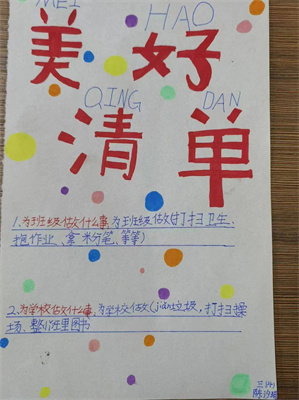 MEI HAO
美好
QING DAN
清单
1.为班级做什么事,为班级做(打扫卫生.
抱作业、拿粉笔、等等)
2.为学校做什么事,为学校做(jian垃圾,打扫操
场、整(li)班里图书
三(4)